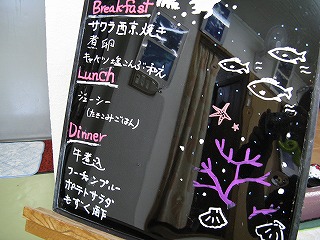 Breakfast
サワラ西京焼き
煮卵
キャベツ塩こんぶ和え
Lunch
ジューシー
(たきこみごはん)
Dinner
牛煮込
フーチャンプルー
ポテトサラダ
もずく酢